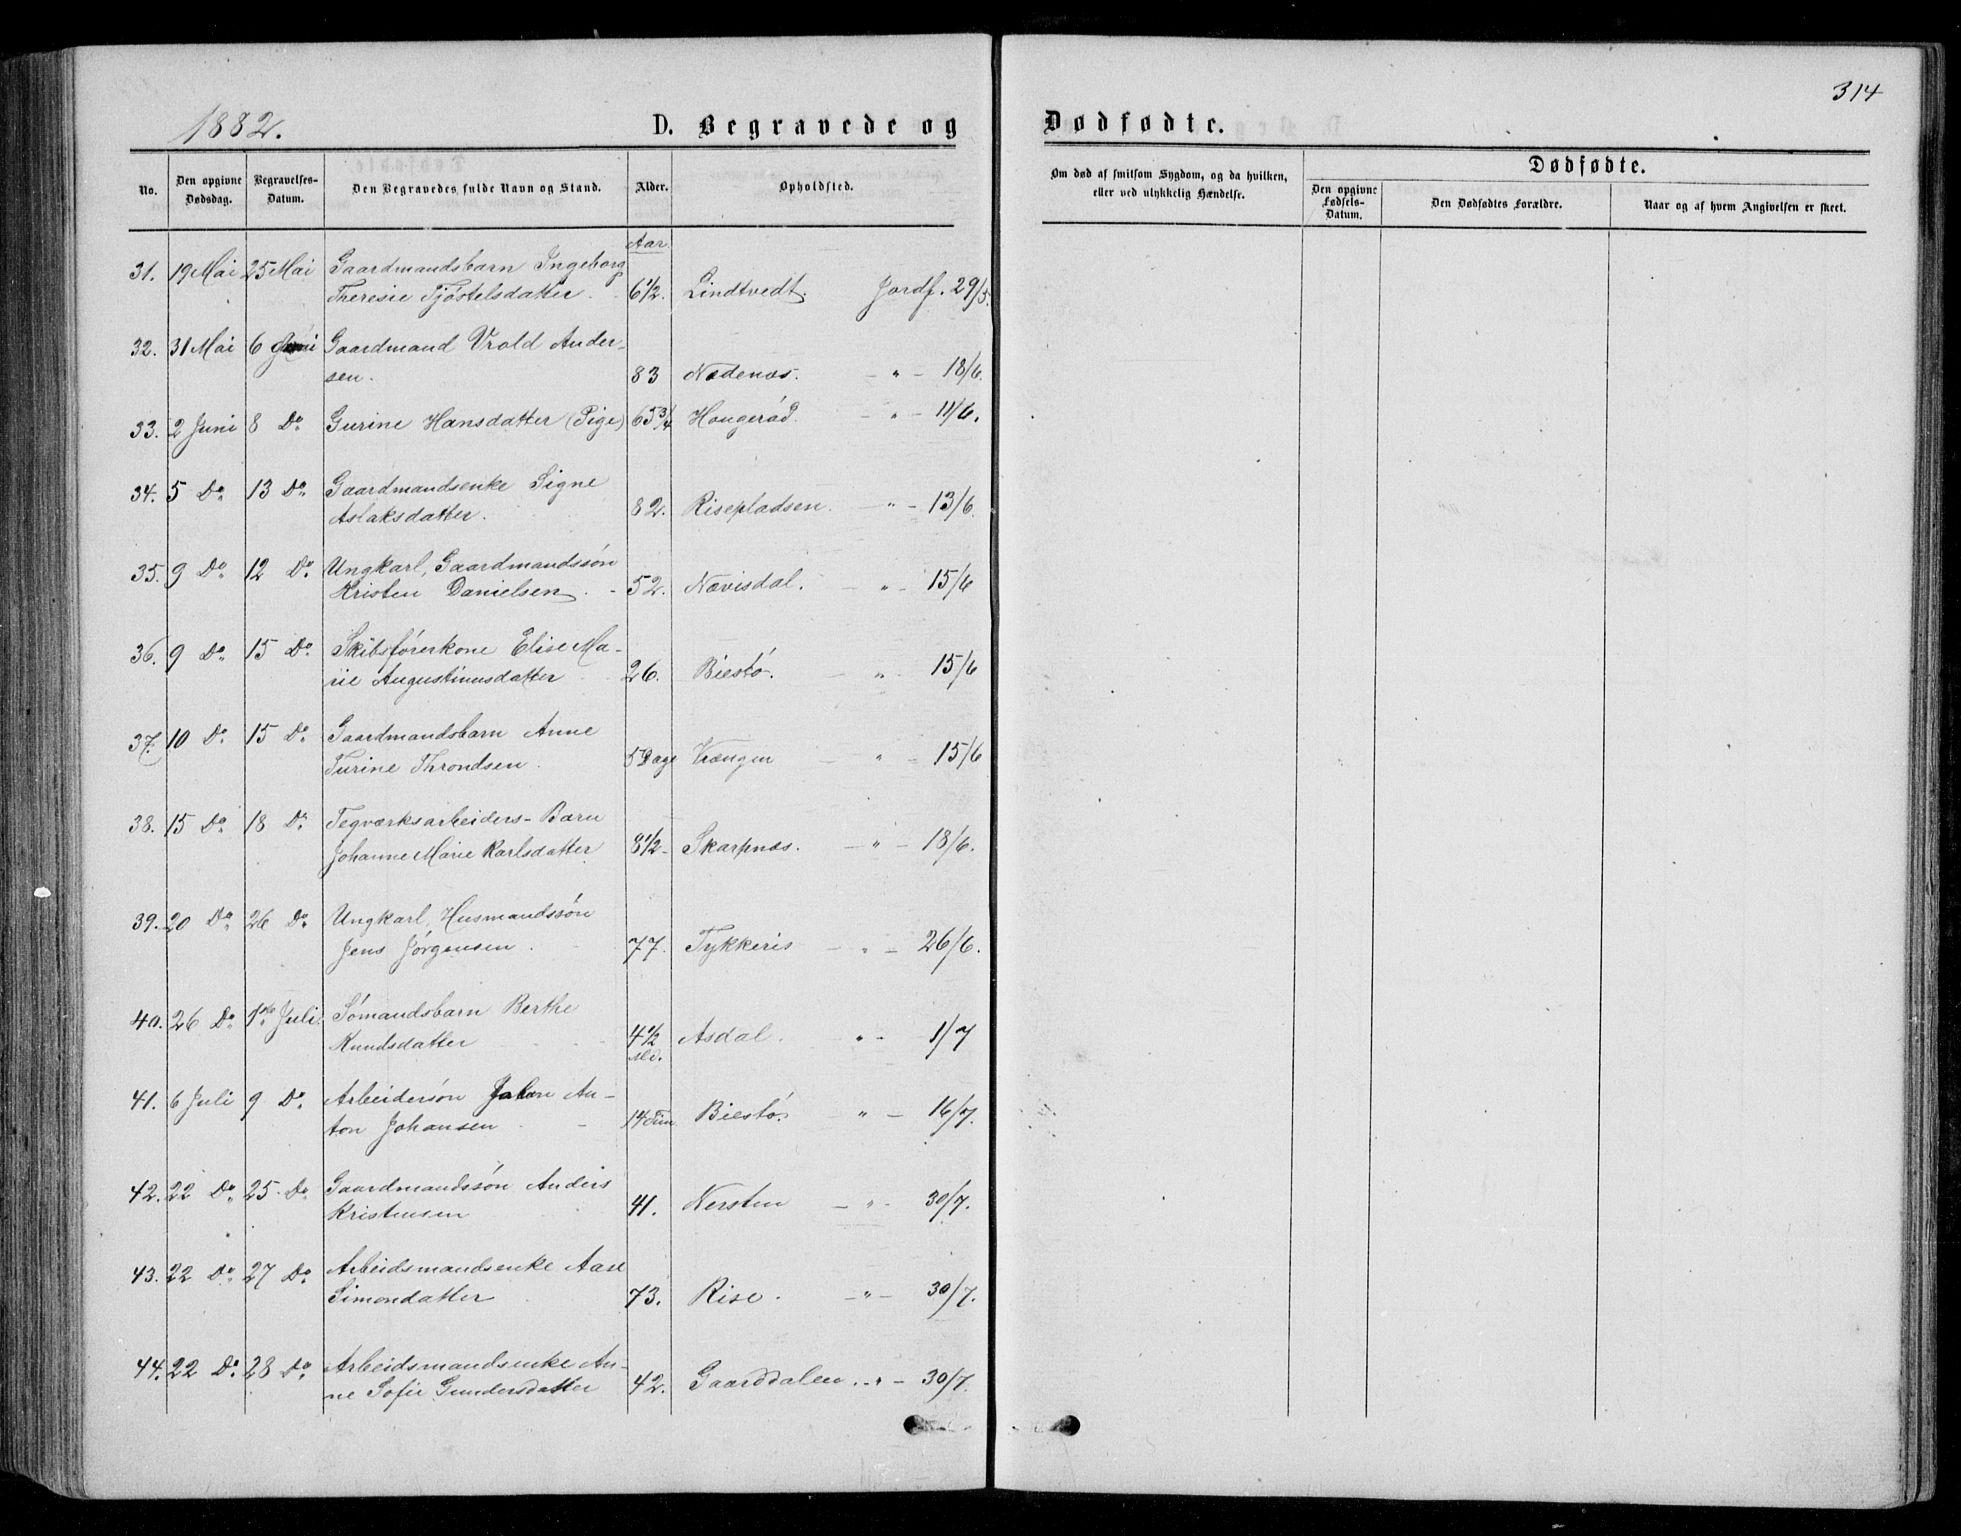 314
1882.
D. Begravede og Dødfødte.
No.
Den opgivne Dødsdag.
Begravelses-Datum.
Den Begravedes fulde Navn og Stand.
Alder.
Opholdsted.
Om død af smitsom Sygdom, og da hvilken,
eller ved ulykkelig Hændelse.
Dødfødte.
Den opgivne Fødsels-Datum.
Den Dødfødtes Forældre.
Naar og af hvem Angivelsen er skeet.
Aar
31. 19 Mai 25 Mai Gaardmandsbarn Ingeborg
Theresie Tjøstelsdatter. 6 1/2. Lindtvedt. Jordf. 29/5.
32. 31 Mai 6 Juni Gaardmand Vrold Ander-
sen. 83 Nedenæs. - " - 18/6.
33. 2 Juni 8 Do Gurine Hansdatter (Pige) 65 3/4 Hougerød. - " - 11/6.
34. 5 Do 13 Do Gaardmandsenke Signe
Aslaksdatter. 82. Risepladsen. - " - 13/6.
35. 9 Do 12 Do Ungkarl, Gaardmandssøn
Kristen Danielsen. - 52. Nævisdal. - " - 15/6
36. 9 Do 15 Do Skibsførerkone Elise Ma-
rie Augustinusdatter 26. Biestø. - " - 15/6
37. 10 Do 15 Do Gaardmandsbarn Anne
Turine Throndsen. 5 Dage Vrængen - " - 15/6
38. 15 Do 18 Do Tegværksarbeiders-Barn
Johanne Marie Karlsdatter 8 1/2 - Skarpnæs. - " - 18/6.
39. 20 Do 26 Do Ungkarl, Husmandssøn
Jens Jørgensen. 77. Tykkeris - " - 26/6.
40. 26 Do 1ste Juli Sømandsbarn Berthe
Knudsdatter 4 1/2 Md. Asdal. " - 1/7
41. 6 Juli 9 Do Arbeidersøn Johan An-
ton Johansen - 14 Tim Biestø. - " - 16/7.
42. 22 Do 25 Do Gaardmandssøn Anders
Kristensen 41. Nersten - " - 30/7.
43. 22 Do 27 Do Arbeidsmandsenke Aase
Simondatter 73. Rise. - " - 30/7.
44. 22 Do 28 Do Arbeidsmandsenke An-
ne Sofie Gundersdatter 42. Gaarddalen. - " - 30/7.